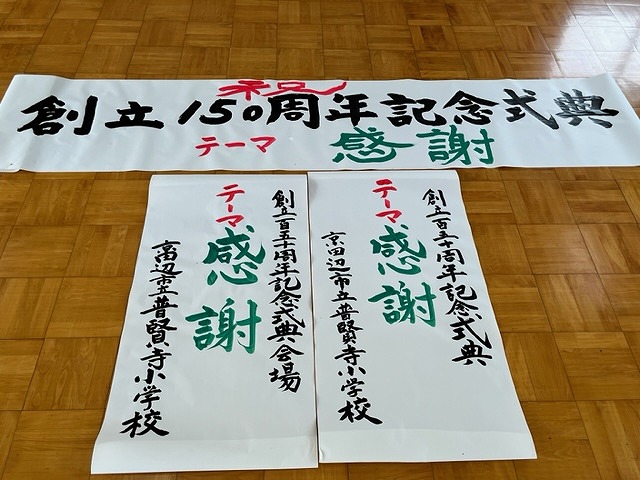 祝
創立150周年記念式典
テーマ 感謝
創立百五十周年記念式典会場
テーマ
感謝
京田辺市立普賢寺小学校
創立百五十周年記念式典
テーマ
感謝
京田辺市立普賢寺小学校